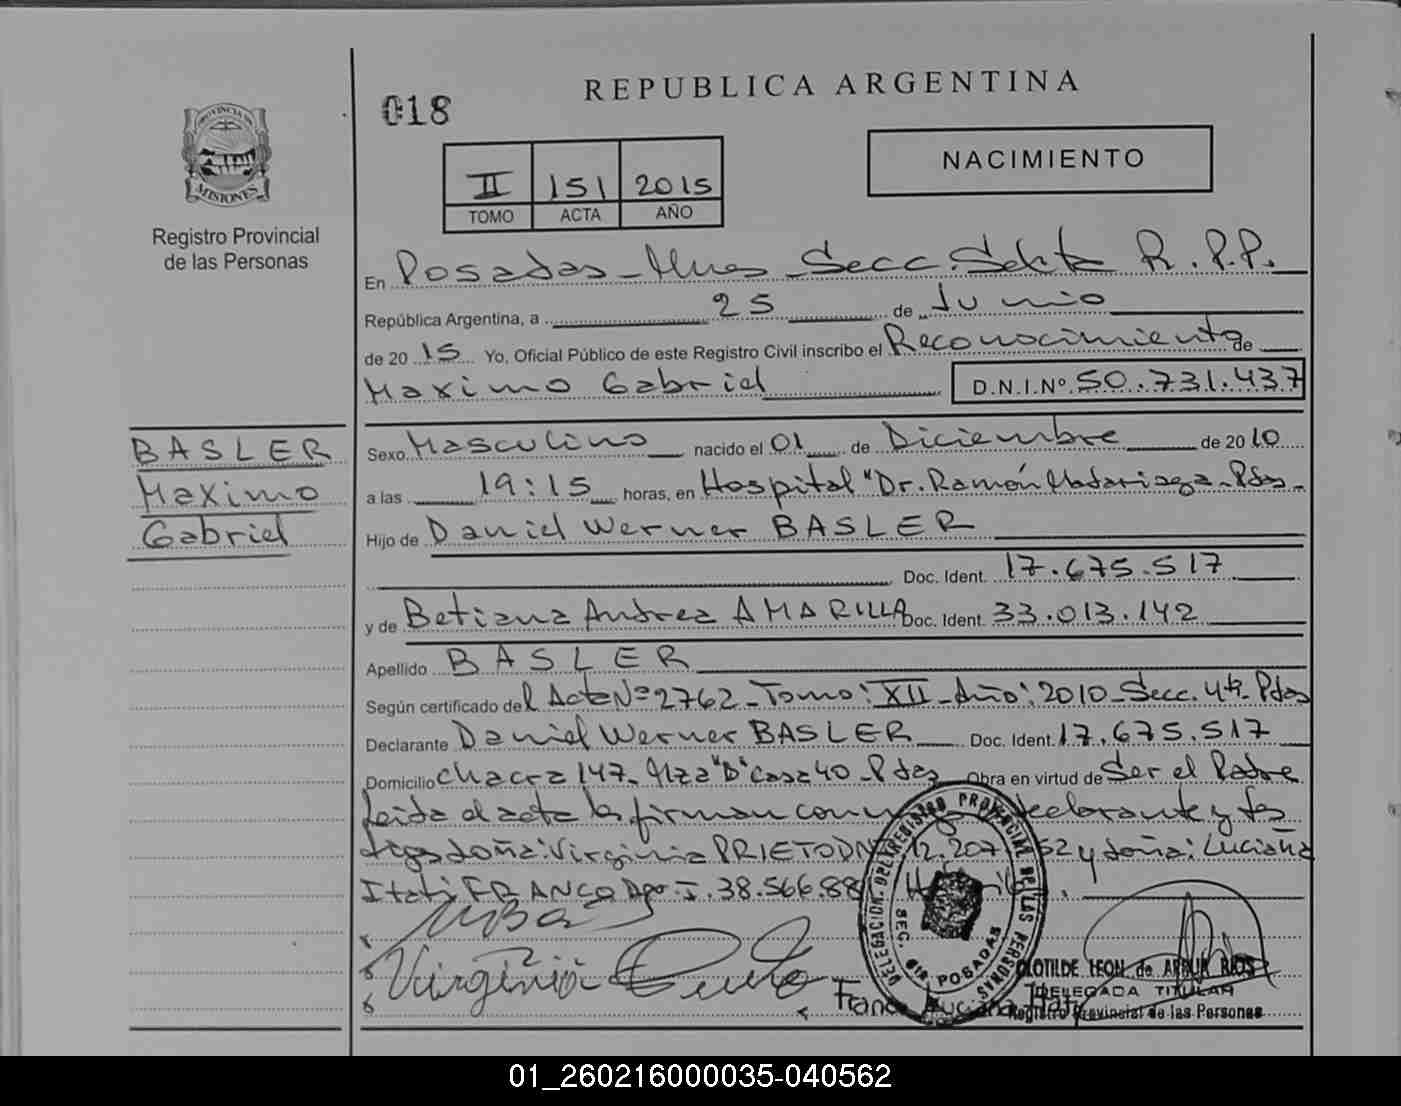 REPUBLICA ARGENTINA
018
NACIMIENTO
II 151 2015
TOMO ACTA AÑO
PROVINCIA DE
MISIONES
Registro Provincial
de las Personas
En Posadas - Mnes - Secc. Sexta R.P.P.
República Argentina, a 25 de Junio
de 2015 Yo, Oficial Público de este Registro Civil inscribo el Reconocimiento de
Maximo Gabriel D.N.I.Nº 50.731.437
BASLER
Maximo
Gabriel
Sexo Masculino nacido el 01 de Diciembre de 2010
a las 19:15 horas, en Hospital "Dr. Ramón Madariaga - Pdas -
Hijo de Daniel Werner BASLER
Doc. Ident. 17.675.517
y de Betiana Andrea AMARILLA Doc. Ident. 33.013.142
Apellido BASLER
Según certificado del Acta Nº 2762 - Tomo: XII - Año: 2010 - Secc. 4ta. Pdas
Declarante Daniel Werner BASLER Doc. Ident. 17.675.517
Domicilio Chacra 147 - Mza "D" Casa 40 - Pdas Obra en virtud de Ser el Padre
Leida el acta la firman declarante y
doña: Virginia PRIETO DNI 12.207 52 y doña: Luciana
Itati FRANCO 38.566.88
Virginia
Franco Luciana Itati
DELEGACION DEL REGISTRO PROVINCIAL DE LAS PERSONAS
SEC. 6ta. POSADAS
CLOTILDE LEON de RIOS
DELEGADA TITULAR
Registro Provincial de las Personas
01_260216000035-040562